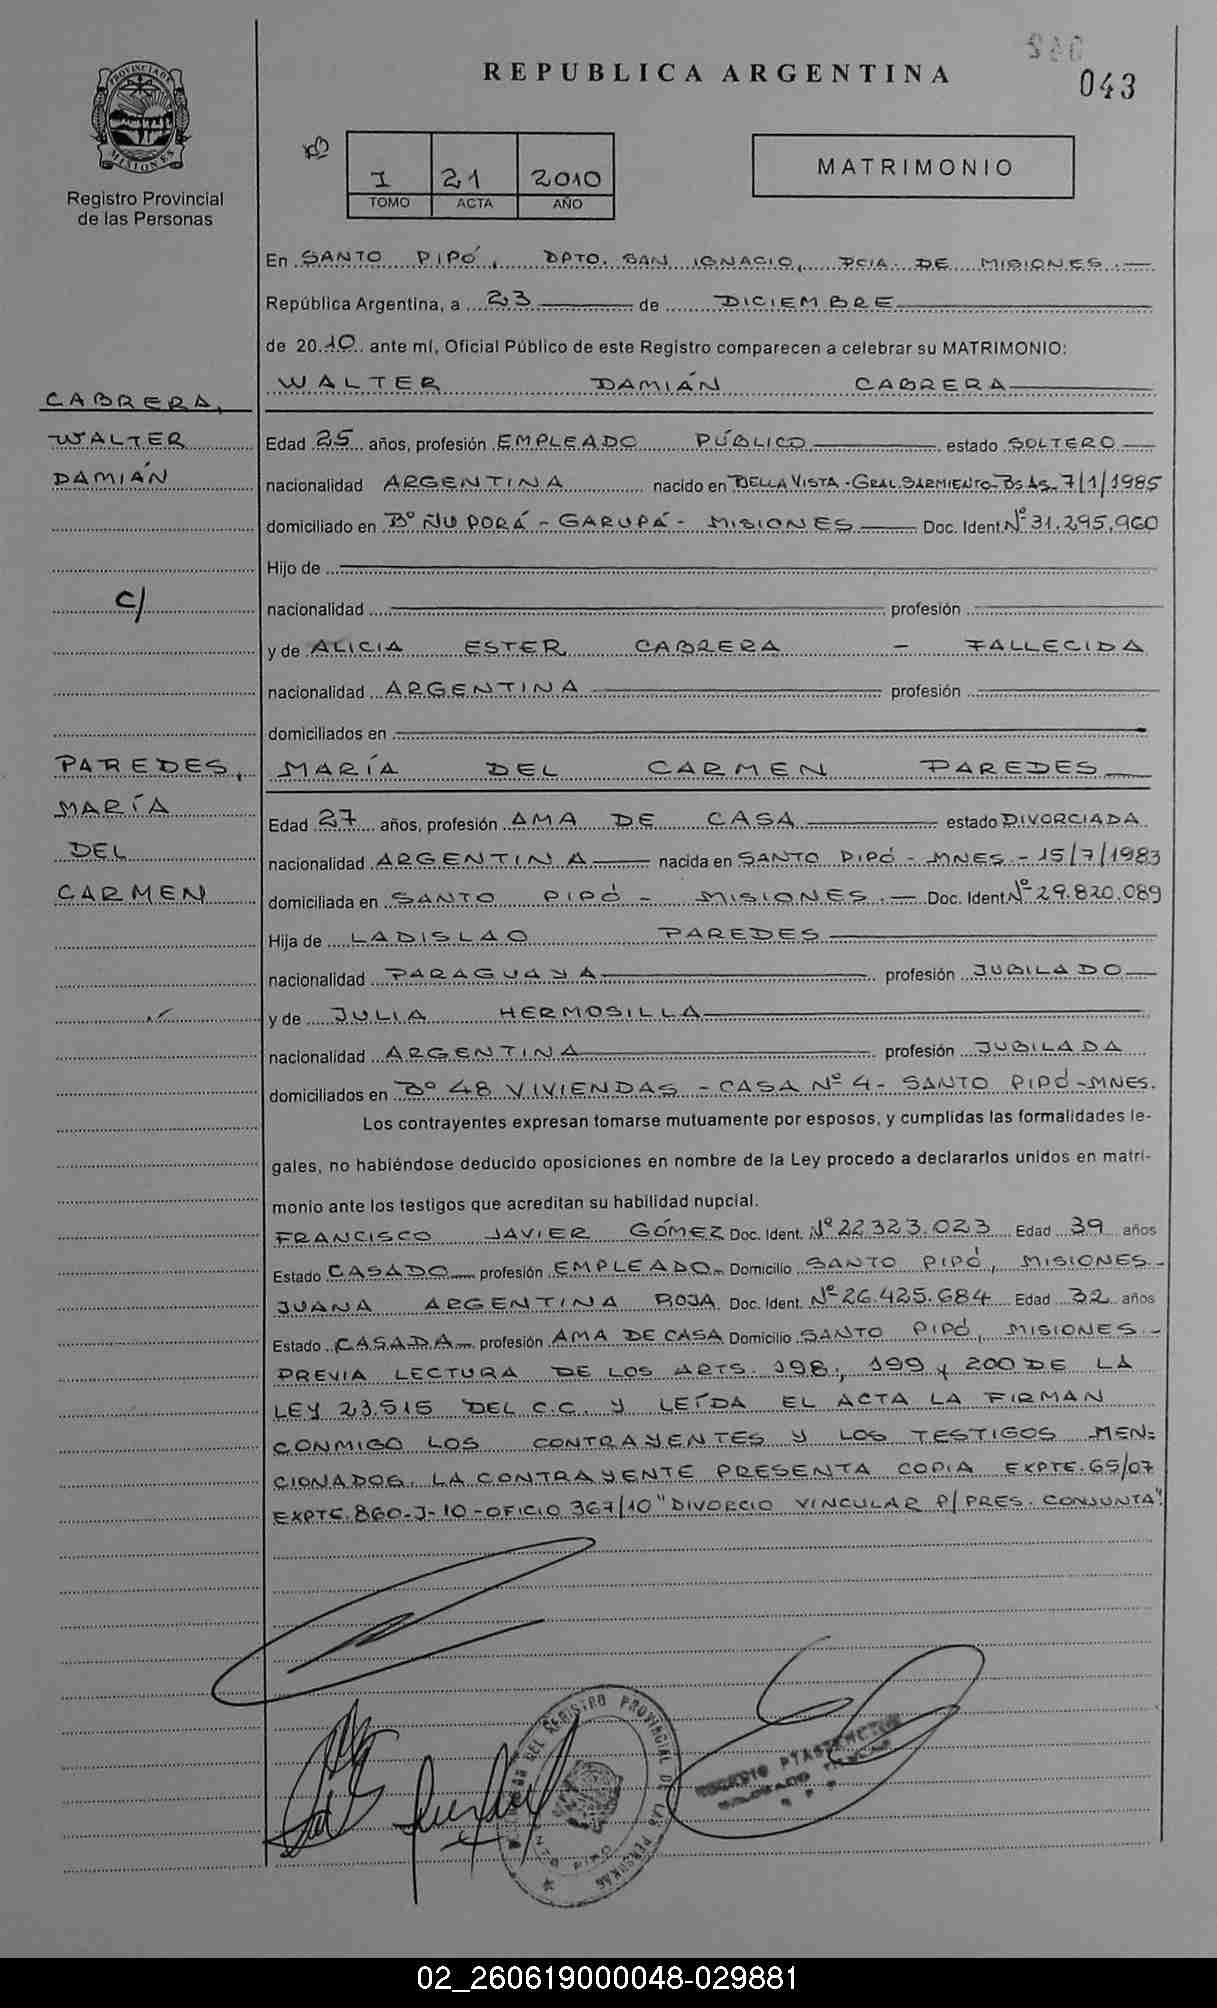 REPUBLICA ARGENTINA
043
PROVINCIA DE MISIONES
Registro Provincial
de las Personas
Nº
I 21 2010
TOMO ACTA AÑO
MATRIMONIO
En SANTO PIPÓ, DPTO. SAN IGNACIO, PCIA. DE MISIONES.—
República Argentina, a 23 de DICIEMBRE
de 2010 ante mí, Oficial Público de este Registro comparecen a celebrar su MATRIMONIO:
WALTER DAMIÁN CABRERA
CABRERA,
WALTER
DAMIÁN
C/
PAREDES,
MARÍA
DEL
CARMEN
Edad 25 años, profesión EMPLEADO PÚBLICO estado SOLTERO
nacionalidad ARGENTINA nacido en BELLA VISTA-GRAL.SARMIENTO-Bs As. 7/1/1985
domiciliado en Bº ÑU PORÁ - GARUPÁ - MISIONES Doc. Ident. Nº 31.295.960
Hijo de
nacionalidad profesión
y de ALICIA ESTER CABRERA - FALLECIDA
nacionalidad ARGENTINA profesión
domiciliados en
MARÍA DEL CARMEN PAREDES
Edad 27 años, profesión AMA DE CASA estado DIVORCIADA
nacionalidad ARGENTINA nacida en SANTO PIPÓ - MNES - 15/7/1983
domiciliada en SANTO PIPÓ - MISIONES.— Doc. Ident. Nº 29.820.089
Hija de LADISLAO PAREDES
nacionalidad PARAGUAYA profesión JUBILADO
y de JULIA HERMOSILLA
nacionalidad ARGENTINA profesión JUBILADA
domiciliados en Bº 48 VIVIENDAS - CASA Nº 4 - SANTO PIPÓ-MNES.
Los contrayentes expresan tomarse mutuamente por esposos, y cumplidas las formalidades le-
gales, no habiéndose deducido oposiciones en nombre de la Ley procedo a declararlos unidos en matri-
monio ante los testigos que acreditan su habilidad nupcial.
FRANCISCO JAVIER GÓMEZ Doc. Ident. Nº 22.323.023 Edad 39 años
Estado CASADO profesión EMPLEADO Domicilio SANTO PIPÓ, MISIONES.-
JUANA ARGENTINA ROJA Doc. Ident. Nº 26.425.684 Edad 32 años
Estado CASADA profesión AMA DE CASA Domicilio SANTO PIPÓ, MISIONES.-
PREVIA LECTURA DE LOS ARTS. 198, 199 y 200 DE LA
LEY 23.515 DEL C.C. Y LEÍDA EL ACTA LA FIRMAN
CONMIGO LOS CONTRAYENTES Y LOS TESTIGOS MEN-
CIONADOS. LA CONTRAYENTE PRESENTA COPIA EXPTE. 65/07
EXPTE. 860-J-10-OFICIO 367/10 "DIVORCIO VINCULAR P/ PRES. CONJUNTA".
DEL REGISTRO PROVINCIAL DE LAS PERSONAS
02_260619000048-029881